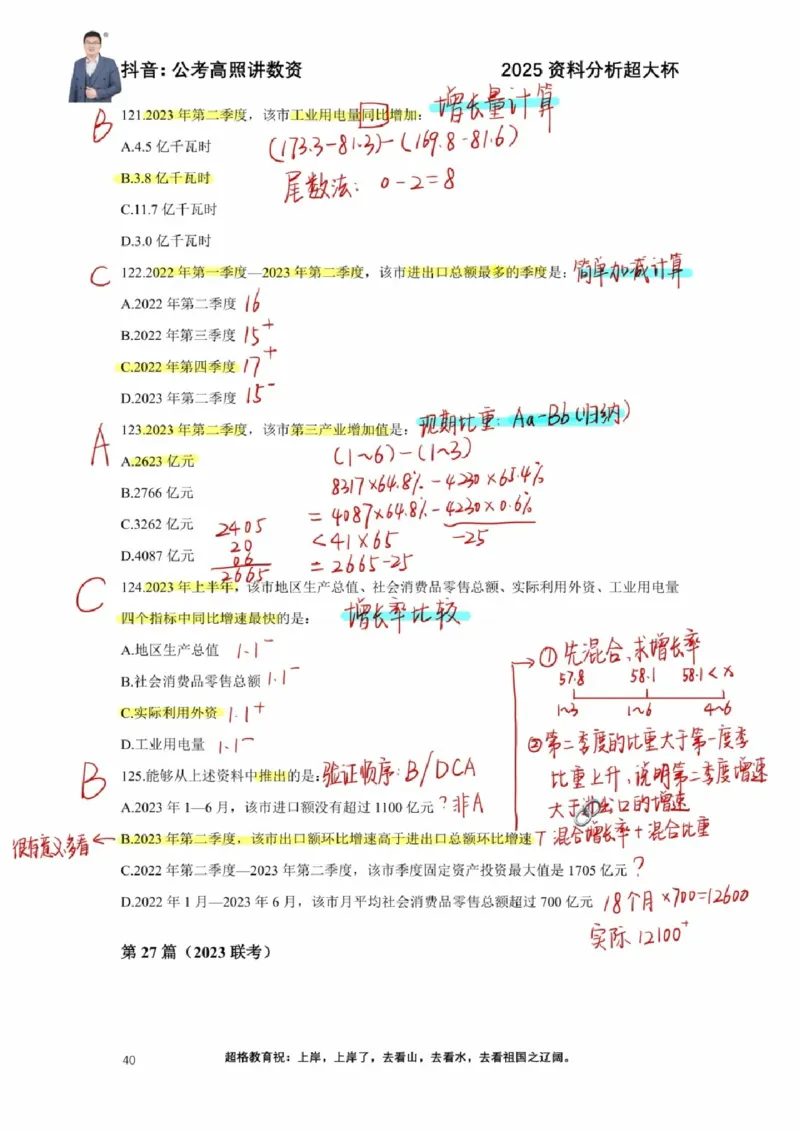 抖音：公考高照讲数资
2025 资料分析超大杯
121.2023 年第二季度，该市工业用电量同比增加：
增长量计算
B
A.4.5 亿千瓦时
(173.3-81.3)-(169.8-81.6)
B.3.8 亿千瓦时
尾数法：0-2=8
C.11.7 亿千瓦时
D.3.0 亿千瓦时
C
122.2022 年第一季度—2023 年第二季度，该市进出口总额最多的季度是：
简单加减计算
A.2022 年第二季度 16
B.2022 年第三季度 15⁺
C.2022 年第四季度 17⁺
D.2023 年第二季度 15⁻
A
123.2023 年第二季度，该市第三产业增加值是：
现期比重：Aa-Bb(归纳)
A.2623 亿元
(1~6)-(1~3)
B.2766 亿元
8317×64.8%-4230×65.4%
C.3262 亿元
=4087×64.8%-4230×0.6%
D.4087 亿元
<41×65 -25
=2665-25
2405
20
06
2665
C
124.2023 年上半年，该市地区生产总值、社会消费品零售总额、实际利用外资、工业用电量
四个指标中同比增速最快的是：
增长率比较
A.地区生产总值 1.1⁻
B.社会消费品零售总额 1.1⁻
C.实际利用外资 1.1⁺
D.工业用电量 1.1⁻
①先混合，求增长率
57.8 58.1 58.1<x
1~3 1~6 4~6
②第二季度的比重大于第一季
比重上升，说明第二季度增速
大于进出口的增速
B
125.能够从上述资料中推出的是：
验证顺序：B/DCA
A.2023 年 1—6 月，该市进口额没有超过 1100 亿元 ？非A
很有意义多看
B.2023 年第二季度，该市出口额环比增速高于进出口总额环比增速
T 混合增长率+混合比重
C.2022 年第二季度—2023 年第二季度，该市季度固定资产投资最大值是 1705 亿元 ？
D.2022 年 1 月—2023 年 6 月，该市月平均社会消费品零售总额超过 700 亿元
18个月×700=12600
实际 12100⁺
第 27 篇（2023 联考）
40
超格教育祝：上岸，上岸了，去看山，去看水，去看祖国之辽阔。